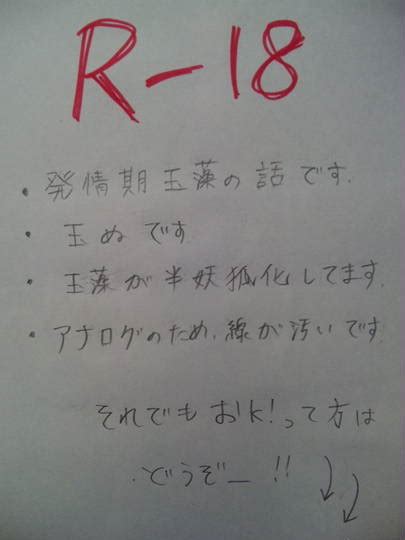 R-18
・発情期玉藻の話です.
・玉ぬです
・玉藻が半妖狐化してます.
・アナログのため、線が汚いです
それでもおk!って方は
どうぞー!!